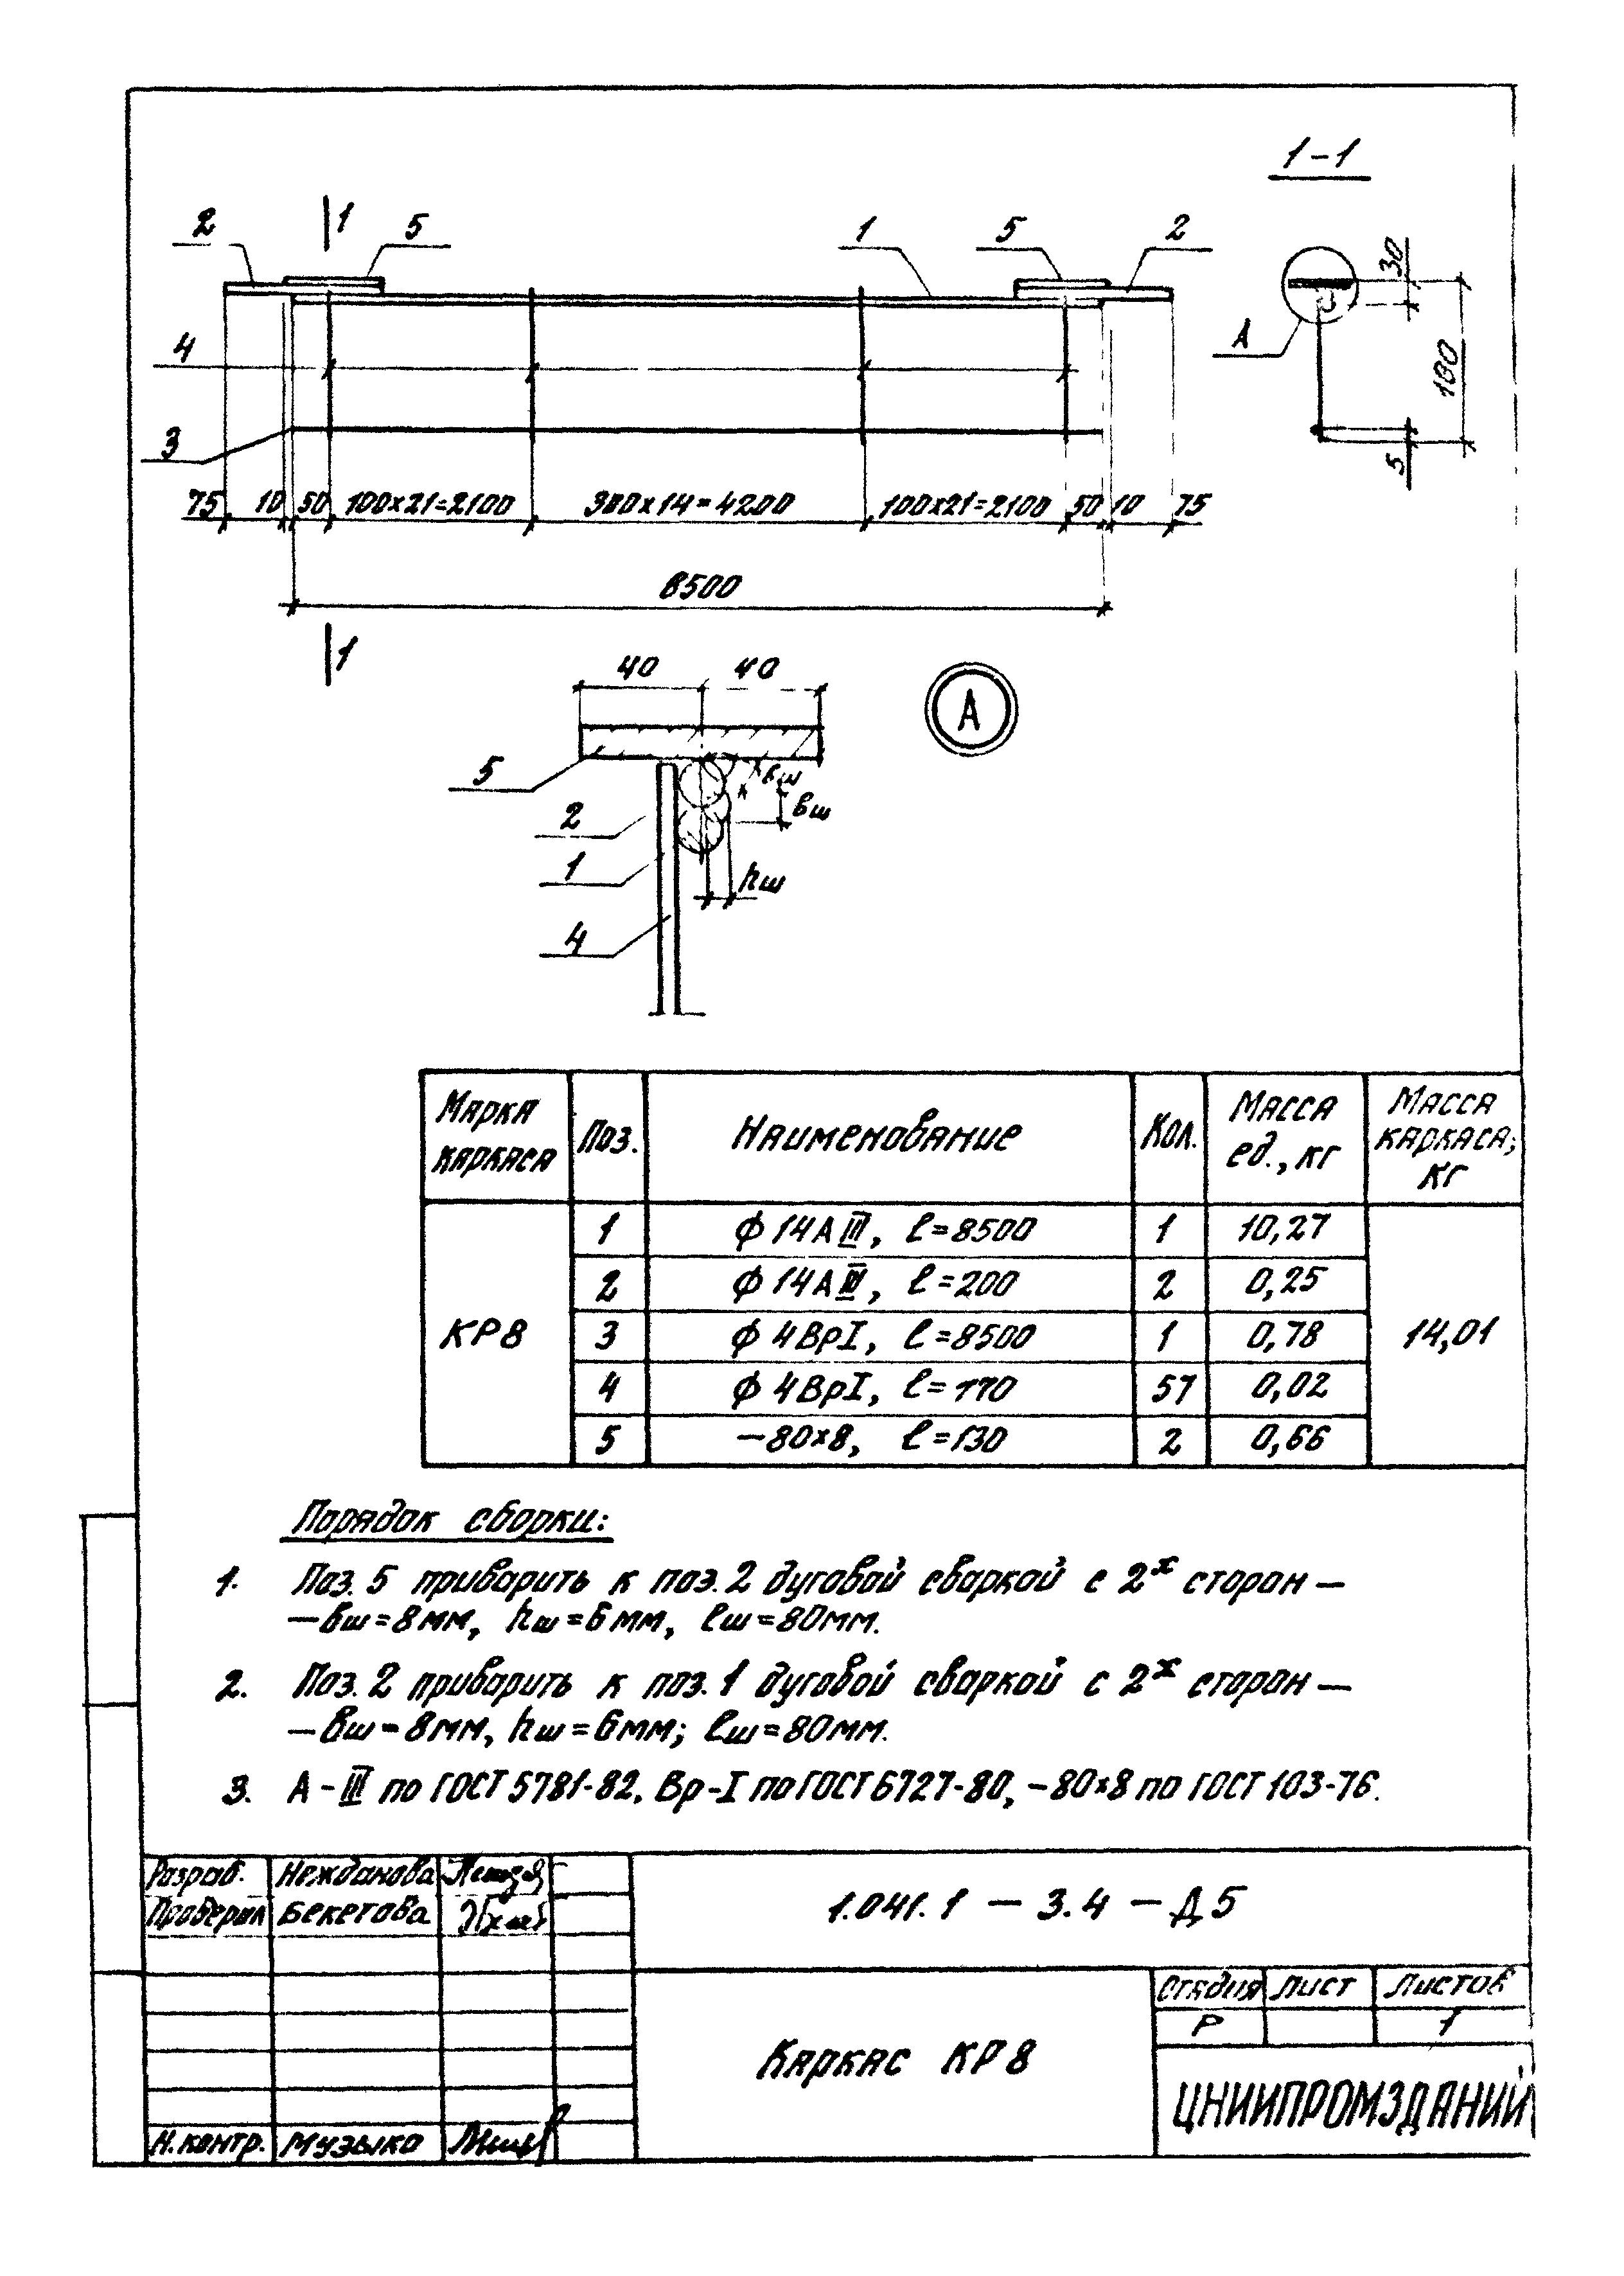 1-1
2
1
5
1
5
2
30
А
180
5
4
3
75 10 50 100х21=2100 300х14=4200 100х21=2100 50 10 75
8500
1
40 40
А
5
вш
вш
2
1
hш
4
Марка каркаса Поз. Наименование Кол. Масса ед., кг Масса каркаса; кг
КР8 1 ф 14АIII, ℓ=8500 1 10,27 14,01
2 ф 14АIII, ℓ=200 2 0,25
3 ф 4ВрI, ℓ=8500 1 0,78
4 ф 4ВрI, ℓ=170 57 0,02
5 -80х8, ℓ=130 2 0,66
Порядок сборки:
1. Поз. 5 приварить к поз. 2 дуговой сваркой с 2х сторон —
— вш=8мм, hш=6мм, ℓш=80мм.
2. Поз. 2 приварить к поз. 1 дуговой сваркой с 2х сторон —
— вш=8мм, hш=6мм; ℓш=80мм.
3. А-III по ГОСТ 5781-82, Вр-I по ГОСТ 6727-80, -80х8 по ГОСТ 103-76.
Разраб. Нежданова
Проверил Бекетова
1.041.1 — 3.4 — Д5
Стадия Лист Листов
Р 1
Каркас КР8
ЦНИИПРОМЗДАНИЙ
Н.контр. Музыко